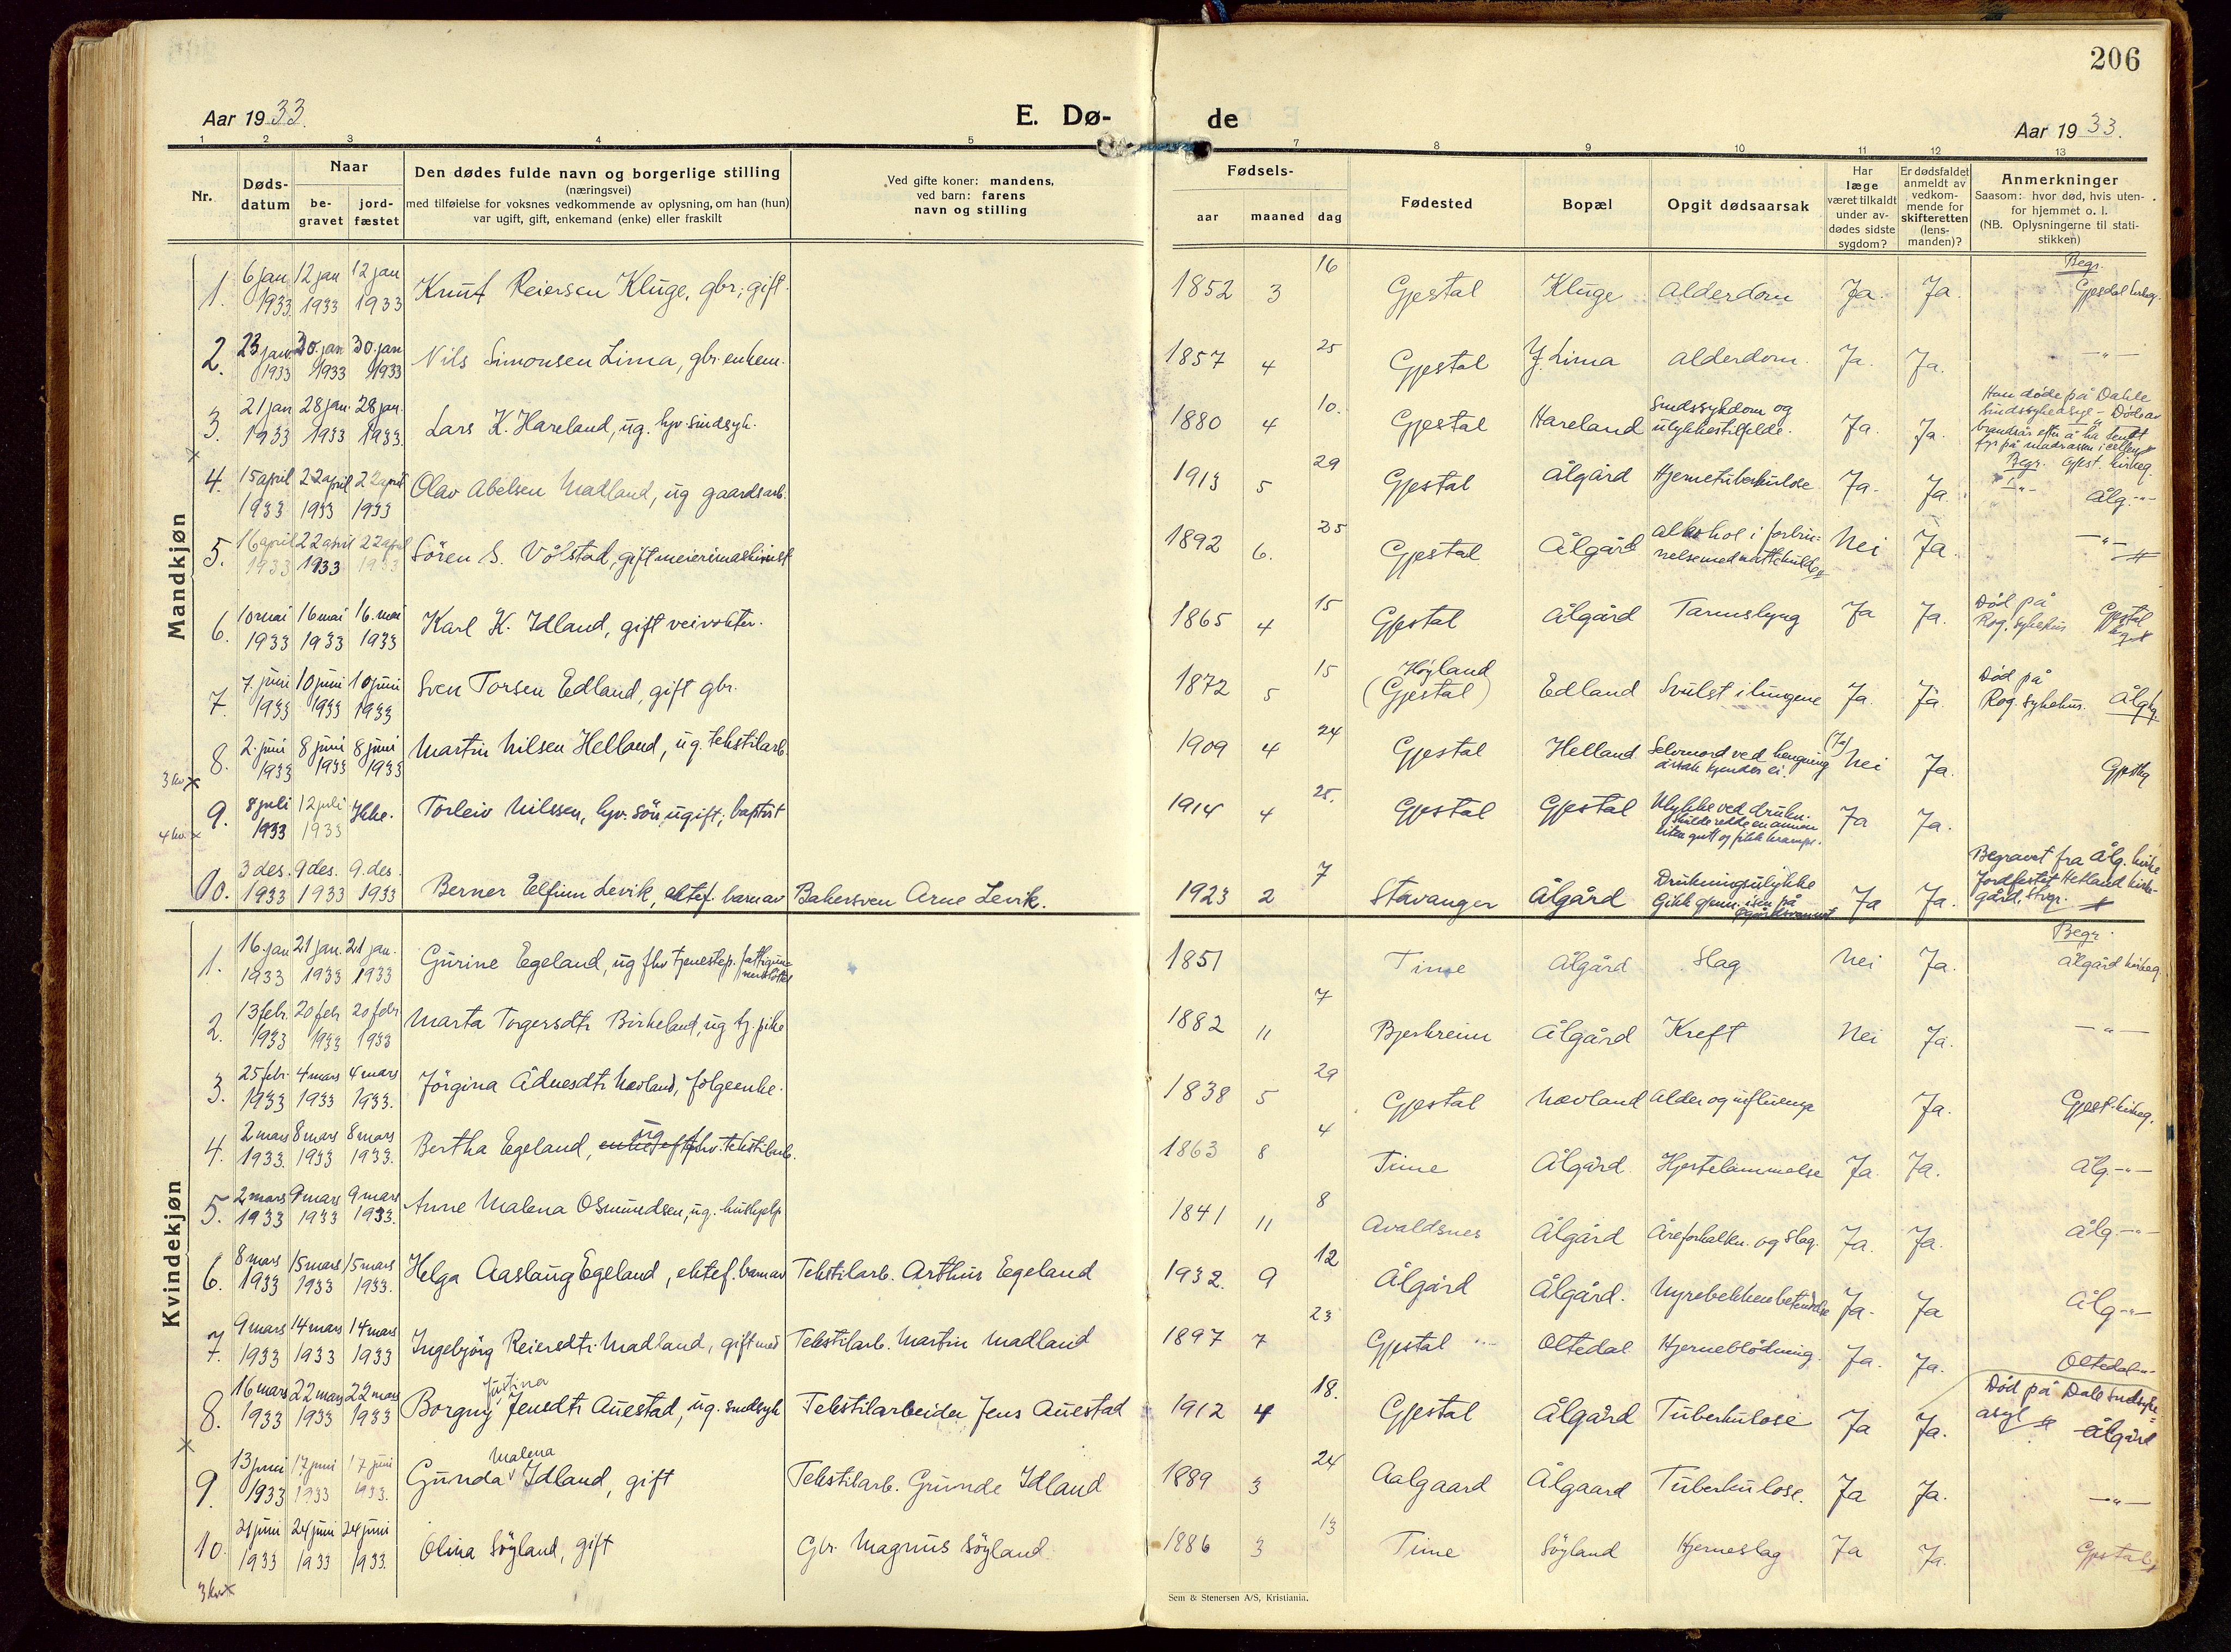 206
Aar 1933.
E. Dø-
de
Aar 1933.
1 2 3 4 5 7 8 9 10 11 12 13
Nr.
Døds-
datum
Naar
be-
gravet
jord-
fæstet
Den dødes fulde navn og borgerlige stilling
(næringsvei)
med tilføielse for voksnes vedkommende av oplysning, om han (hun)
var ugift, gift, enkemand (enke) eller fraskilt
Ved gifte koner: mandens,
ved barn: farens
navn og stilling
Fødsels-
aar maaned dag
Fødested
Bopæl
Opgit dødsaarsak
Har
læge
været tilkaldt
under av-
dødes sidste
sygdom?
Er dødsfaldet
anmeldt av
vedkom-
mende for
skifteretten
(lens-
manden)?
Anmerkninger
Saasom: hvor død, hvis uten-
for hjemmet o. l.
(NB. Oplysningerne til stati-
stikken)
Mandkjøn
1. 6 jan 1933. 12 jan 1933 12 jan 1933 Knut Reiersen Kluge, gbr., gift. 1852 3 16 Gjestal Kluge Alderdom Ja. Ja. Begr. Gjesdal kirkeg.
2. 23 jan 1933 30. jan 1933 30. jan 1933 Nils Simonsen Lima, gbr. enkem. 1857 4 25 Gjestal Y. Lima Alderdom. Ja. Ja. —"—
3. 21 jan 1933 28 jan. 1933 28 jan. 1933. Lars K. Hareland, ug. hjv. sindsyk. 1880 4 10. Gjestal Hareland Sindssykdom og ulykkestilfelde. Ja. Ja. Han døde på Dahle sindssykeasyl - Døde av brandsår efter å ha tendt fyr på madrassen i cellen Begr. Gjest. kirkeg.
4. 15 april 1933 22 april 1933 22 april 1933 Olav Abelsen Madland, ug gaardsarb. 1913 5 29 Gjestal Ålgård Hjernetuberkulose Ja. Ja. —"— Ålg. -"-
5. 16 april 1933 22 april 1933 22 april 1933 Sören S. Vølstad, gift meierimaskinist 1892 6. 25 Gjestal Ålgård Alkohol i forbin- nelse med nattekulde Nei Ja. —"—
6. 10 mai 1933 16 mai 1933 16. mai 1933 Karl K. Idland, gift veivokter. 1865 4 15 Gjestal Ålgård Tarmslyng Ja Ja. Død på Rog. sykehus Gjestal
7. 7. juni 1933 10 juni 1933 10 juni 1933 Sven Torsen Edland, gift gbr. 1872 5 15 Høyland (Gjestal) Edland Svulst i lungene Ja. Ja. Død på Rog. sykehus. Ålg.
8. 2. juni 1933 8 juni 1933 8 juni 1933 Martin Nilsen Helland, ug. tekstilarb. 1909 4 24 Gjestal Helland Selvmord ved hengning årsak kjendes ei. (Ja) Nei Ja.
3 kv. x
9. 8 juli 1933 12 juli 1933 Ikke. Torleiv Nilssen, hjv. sön, ugift; baptist 1914 4 25. Gjestal Gjestal Ulykke ved drukn. skulde redde en annen liten gutt og fikk krampe. Ja Ja.
4 kv. x
10. 3 des. 1933 9 des. 1933 9. des. 1933 Berner Elfinn Levik, ektef. barn av Bakersven Arne Levik. 1923 2 7 Stavanger Ålgård Drukningsulykke Gikk gjenn. isen på Ja Ja. Begravet fra Ålg. kirke Jordfestet Hetland kirke- gård, Stvgr.
Kvindekjøn
1. 16. jan 1933 21 jan. 1933 21 jan. 1933 Gurine Egeland, ug fhv tjenestep. 1851 Time Ålgård Slag Nei Ja. Begr. Ålgård kirkeg.
2. 13 febr. 1933 20 feb 1933 20 febr 1933 Marta Torgersdtr Birkeland, ug tj. pike 1882 11 7 Bjerkreim Ålgård Kreft Nei Ja. —"—
3. 25 febr. 1933 4 mars 1933 4 mars 1933. Jörgina Ådnesdtr Nævland, følgeenke. 1838 5 29 Gjestal Nævland Alder og influenza Ja. Gjest. kirkeg.
4. 2 mars 1933. 8 mars 1933 8 mars 1933. Bertha Egeland, ug fhv. tekstilarb. 1863 8 4 Time Ålgård Hjertelammelse Ja. Ja. Ålg. -"-
5. 2 mars 1933 9 mars 1933 9 mars 1933. Anne Malena Osmundsen, ug. hushjelp 1841 11 8 Avaldsnes Ålgård Åreforkalkn. og slag. Ja. Ja. Ålg. -"-
6. 8 mars 1933 15 mars 1933 15 mars 1933. Helga Aaslaug Egeland, ektef. barn av Tekstilarb. Arthur Egeland 1932. 9 12 Ålgård Ålgård. Nyrebekkenbetendelse Ja. Ja Ålg -"-
7. 9 mars 1933 14 mars 1933 14 mars 1933 Ingebjörg Reiersdtr. Madland, gift med Tekstilarb. Martin Madland 1897 7 23 Gjestal Oltedal Hjerneblödning. Ja. Ja. Oltedal -"-
8. 16 mars 1933 22 mars 1933 22 mars 1933 Borgny Justina Jensdtr Auestad, ug. sindsyk Tekstilarbeider Jens Auestad 1912 4 18. Gjestal Ålgård Tuberkulose Ja Ja. Død på Dale sindsyke- asyl Ålgård
9. 13 juni 1933 17 juni 1933 17 juni 1933. Gunda Malena Idland, gift Tekstilarb. Grunde Idland 1889 3 24 Aalgaard Ålgaard Tuberkulose. Ja Ja. —"—
10. 21 juni 1933 24 juni 1933 24 juni 1933. Olina Söyland, gift Gbr. Magnus Söyland 1886 3 13 Time Söyland Hjerneslag Ja Ja. Gjestal
3 kv. x
Sem & Stenersen A/S, Kristiania.